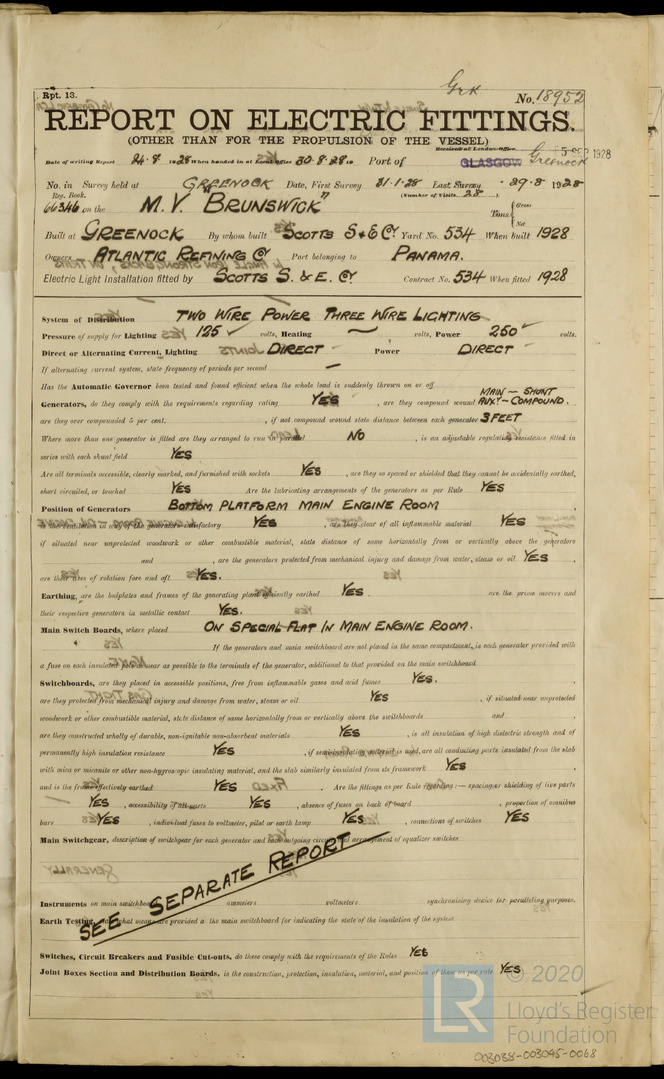 Rpt. 13.
Grk
No. 18952
REPORT ON ELECTRIC FITTINGS.
(OTHER THAN FOR THE PROPULSION OF THE VESSEL)
Received at London Office
5 1928
Date of writing Report 24.8 1928 when handed in at Local Office 30.8.28 Port of GLASGOW Greenock
No. in Survey held at GREENOCK Date, First Survey 31.1.28 Last Survey 29.8 1928
Reg. Book. (Number of Visits 28)
66346 on the M.V. "BRUNSWICK" Tons { Gross Net
Built at GREENOCK By whom built SCOTTS S & E Cy Yard No. 534 When built 1928
Owners ATLANTIC REFINING Cy Port belonging to PANAMA.
Electric Light Installation fitted by SCOTTS S. & E. Cy. Contract No. 534 When fitted 1928
System of Distribution TWO WIRE POWER THREE WIRE LIGHTING
Pressure of supply for Lighting 125 ✓ volts, Heating ~ volts, Power 250 ✓ volts.
Direct or Alternating Current, Lighting DIRECT Power DIRECT
If alternating current system, state frequency of periods per second —
Has the Automatic Governor been tested and found efficient when the whole load is suddenly thrown on or off
MAIN – SHUNT
Generators, do they comply with the requirements regarding rating YES, are they compound wound AUXy – COMPOUND.
are they over compounded 5 per cent. , if not compound wound state distance between each generator 3 FEET
Where more than one generator is fitted are they arranged to run in parallel NO , is an adjustable regulating resistance fitted in
series with each shunt field YES
Are all terminals accessible, clearly marked, and furnished with sockets YES , are they so spaced or shielded that they cannot be accidentally earthed,
short circuited, or touched YES Are the lubricating arrangements of the generators as per Rule YES
Position of Generators BOTTOM PLATFORM MAIN ENGINE ROOM
is the ventilation in way of the generators satisfactory YES , are they clear of all inflammable material YES
if situated near unprotected woodwork or other combustible material, state distance of same horizontally from or vertically above the generators
and , are the generators protected from mechanical injury and damage from water, steam or oil YES ,
are their axes of rotation fore and aft YES.
Earthing, are the bedplates and frames of the generating plant efficiently earthed YES. are the prime movers and
their respective generators in metallic contact YES.
Main Switch Boards, where placed ON SPECIAL FLAT IN MAIN ENGINE ROOM.
If the generators and main switchboard are not placed in the same compartment, is each generator provided with
a fuse on each insulated pole as near as possible to the terminals of the generator, additional to that provided on the main switchboard
Switchboards, are they placed in accessible positions, free from inflammable gases and acid fumes YES. ,
are they protected from mechanical injury and damage from water, steam or oil YES , if situated near unprotected
woodwork or other combustible material, state distance of same horizontally from or vertically above the switchboards and ,
are they constructed wholly of durable, non-ignitable non-absorbent materials YES , is all insulation of high dielectric strength and of
permanently high insulation resistance YES , if semi-insulating material is used, are all conducting parts insulated from the slab
with mica or micanite or other non-hygroscopic insulating material, and the slab similarly insulated from its framework YES ,
and is the frame effectively earthed YES . Are the fittings as per Rule regarding:— spacing or shielding of live parts
YES , accessibility of all parts YES , absence of fuses on back of board , proportion of omnibus
bars YES , individual fuses to voltmeter, pilot or earth lamp YES , connections of switches YES
Main Switchgear, description of switchgear for each generator and each outgoing circuit, and arrangement of equalizer switches
SEE SEPARATE REPORT
Instruments on main switchboard ammeters voltmeters synchronising device for paralleling purposes.
Earth Testing, state what means are provided at the main switchboard for indicating the state of the insulation of the system
Switches, Circuit Breakers and Fusible Cut-outs, do these comply with the requirements of the Rules YES
Joint Boxes Section and Distribution Boards, is the construction, protection, insulation, material, and position of these as per rule YES
© 2020
LR
Lloyd's Register
Foundation
003088-003095-0068